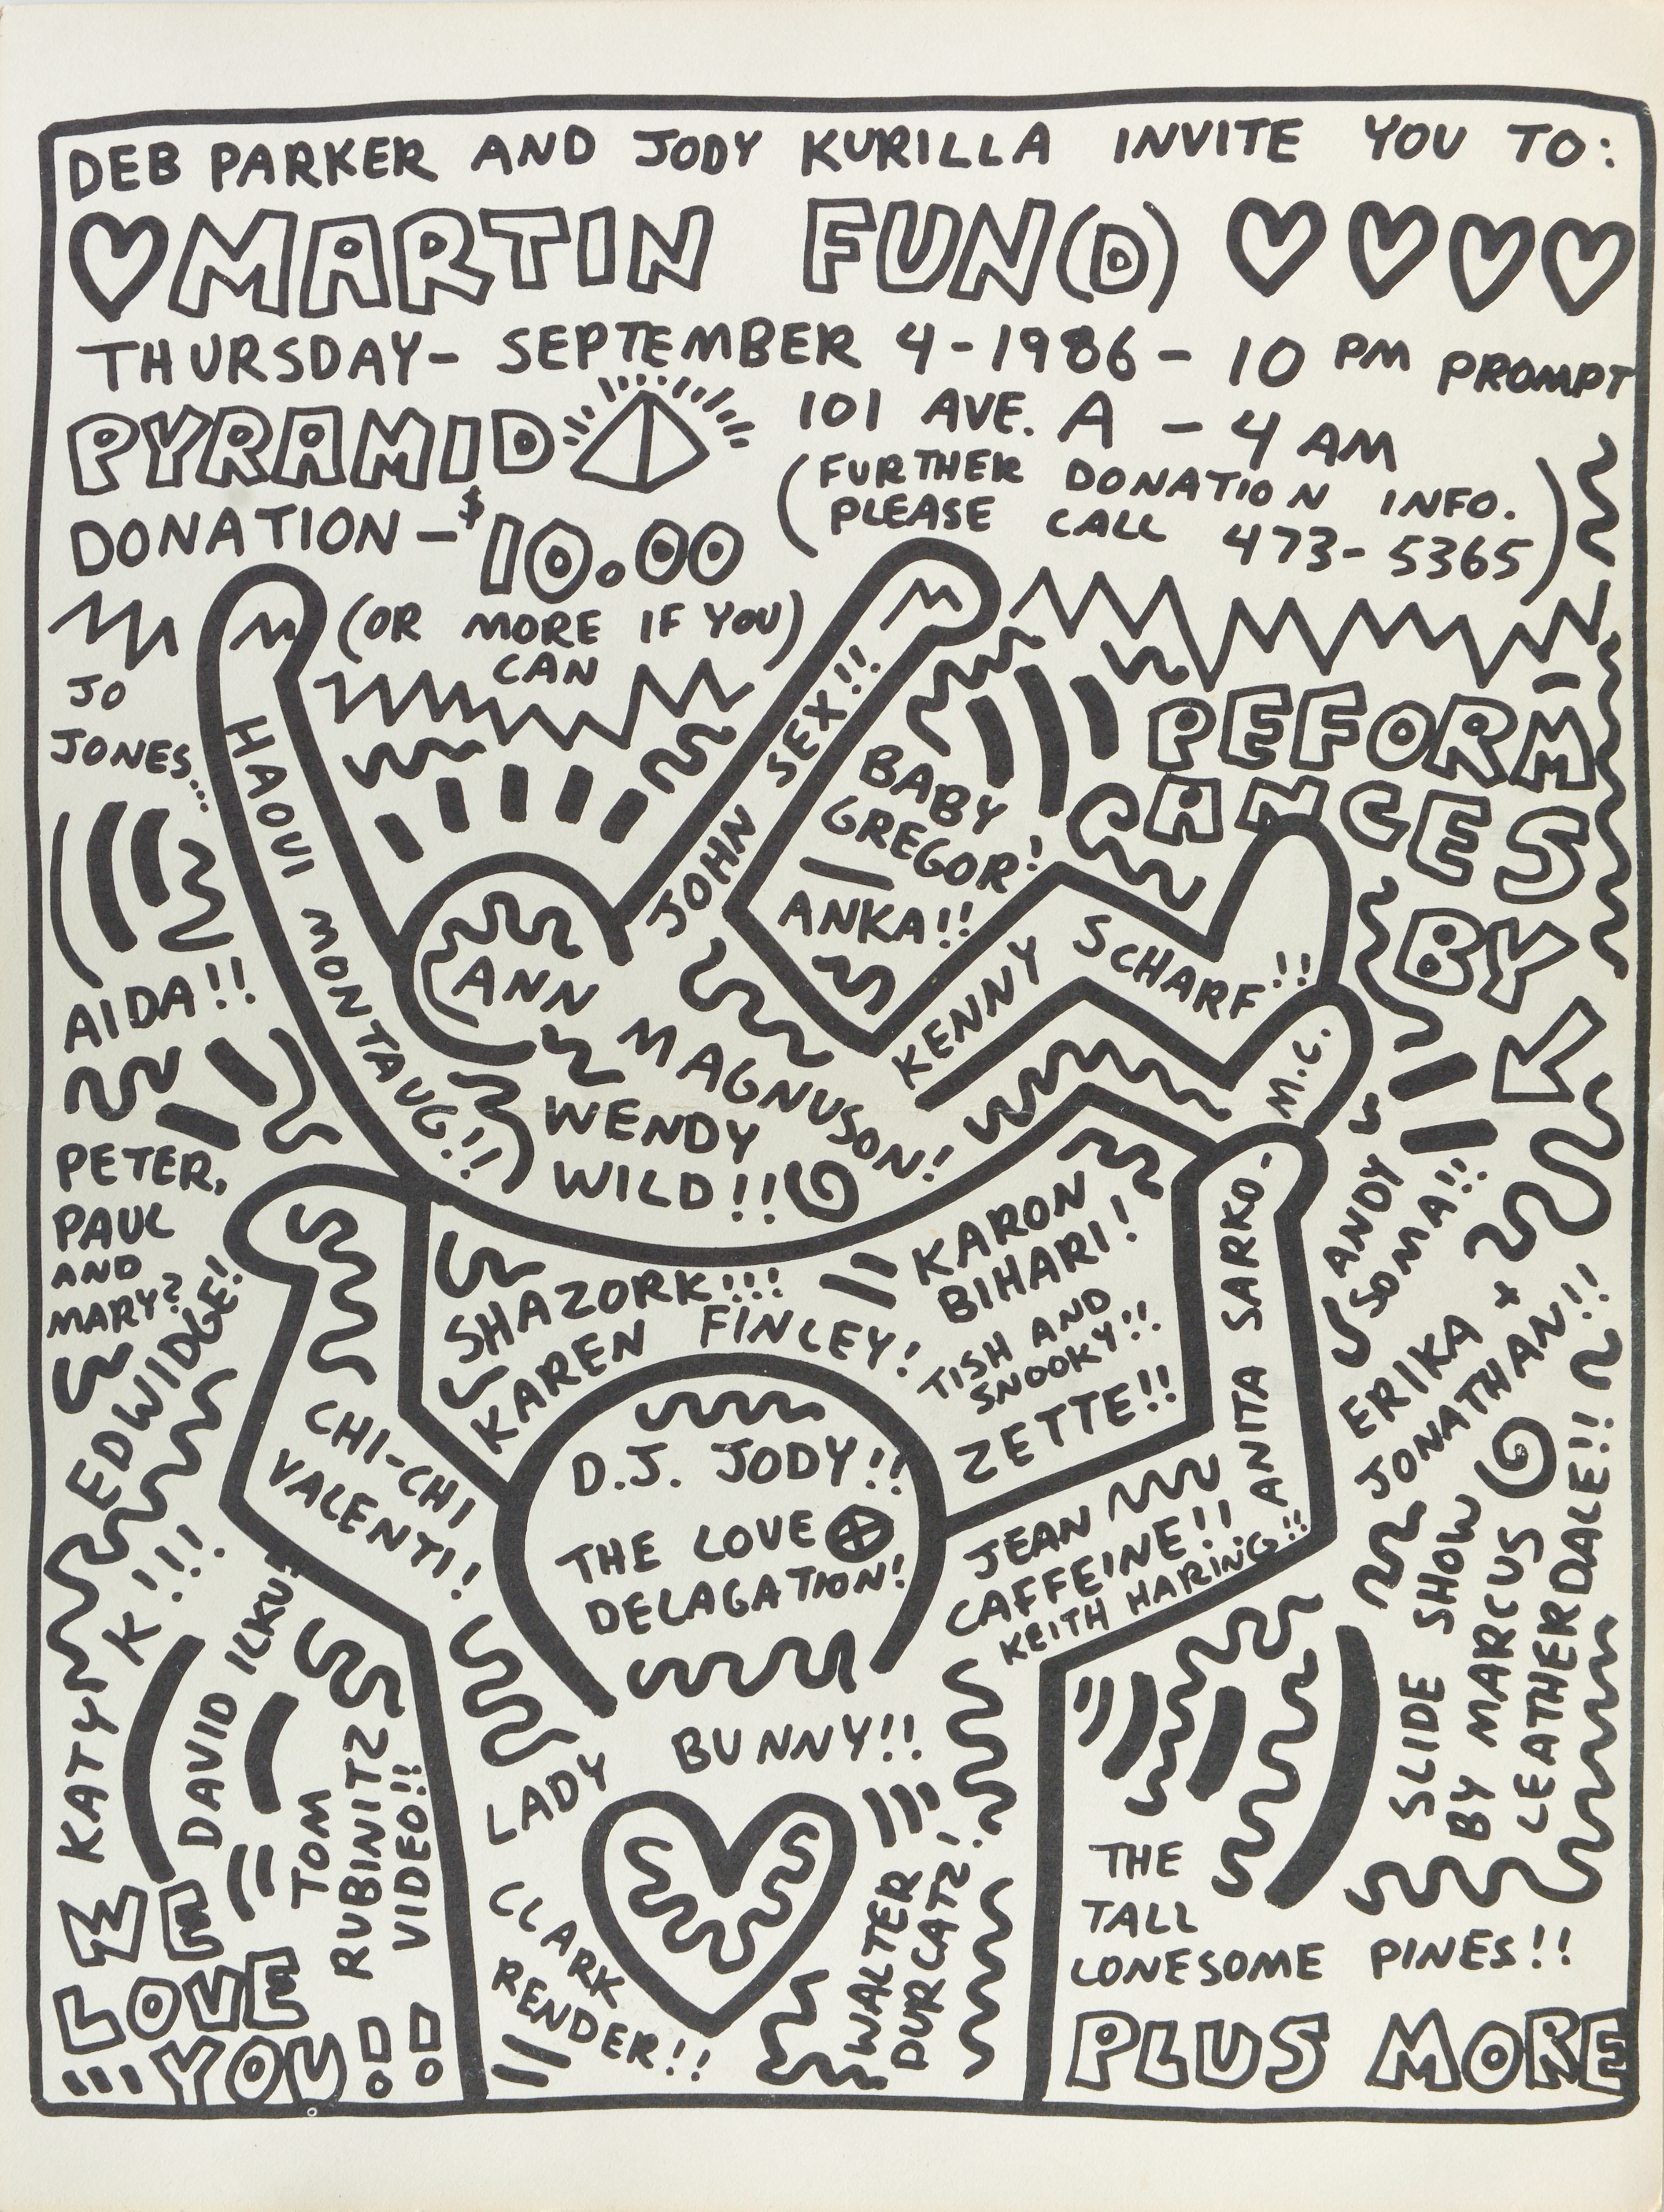 DEB PARKER AND JODY KURILLA INVITE YOU TO:
MARTIN FUN(D)
THURSDAY - SEPTEMBER 4-1986 - 10 PM PROMPT
PYRAMID
101 AVE. A - 4 AM
(FURTHER DONATION INFO.
PLEASE CALL 473-5365)
DONATION - $10.00
(OR MORE IF YOU)
CAN
PEFORM
ANCES
BY
JO
JONES...
HAOUI MONTAUG!!
JOHN SEX!!
BABY
GREGOR!
ANKA!!
KENNY SCHARF!!
M.C.
ANN MAGNUSON!
WENDY
WILD!!
AIDA!!
PETER,
PAUL
AND
MARY?
EDWIDGE!
KATY K!!!
DAVID ILKU?
TOM
RUBINITZ
VIDEO!!
CHI-CHI
VALENTI!
SHAZORK!!!
KAREN FINLEY!
KARON
BIHARI!
TISH AND
SNOOKY!!
ZETTE!!
ANITA SARKO-
ANDY
SOMA!!
ERIKA +
JONATHAN!!
D.J. JODY!!
THE LOVE
DELAGATION!
JEAN
CAFFEINE!!
KEITH HARING!!
SLIDE SHOW
BY MARCUS
LEATHERDALE!!
LADY BUNNY!!
CLARK
RENDER!!
WALTER
DURCATZ!
THE
TALL
LONESOME PINES!!
WE
LOVE
YOU!!
PLUS MORE